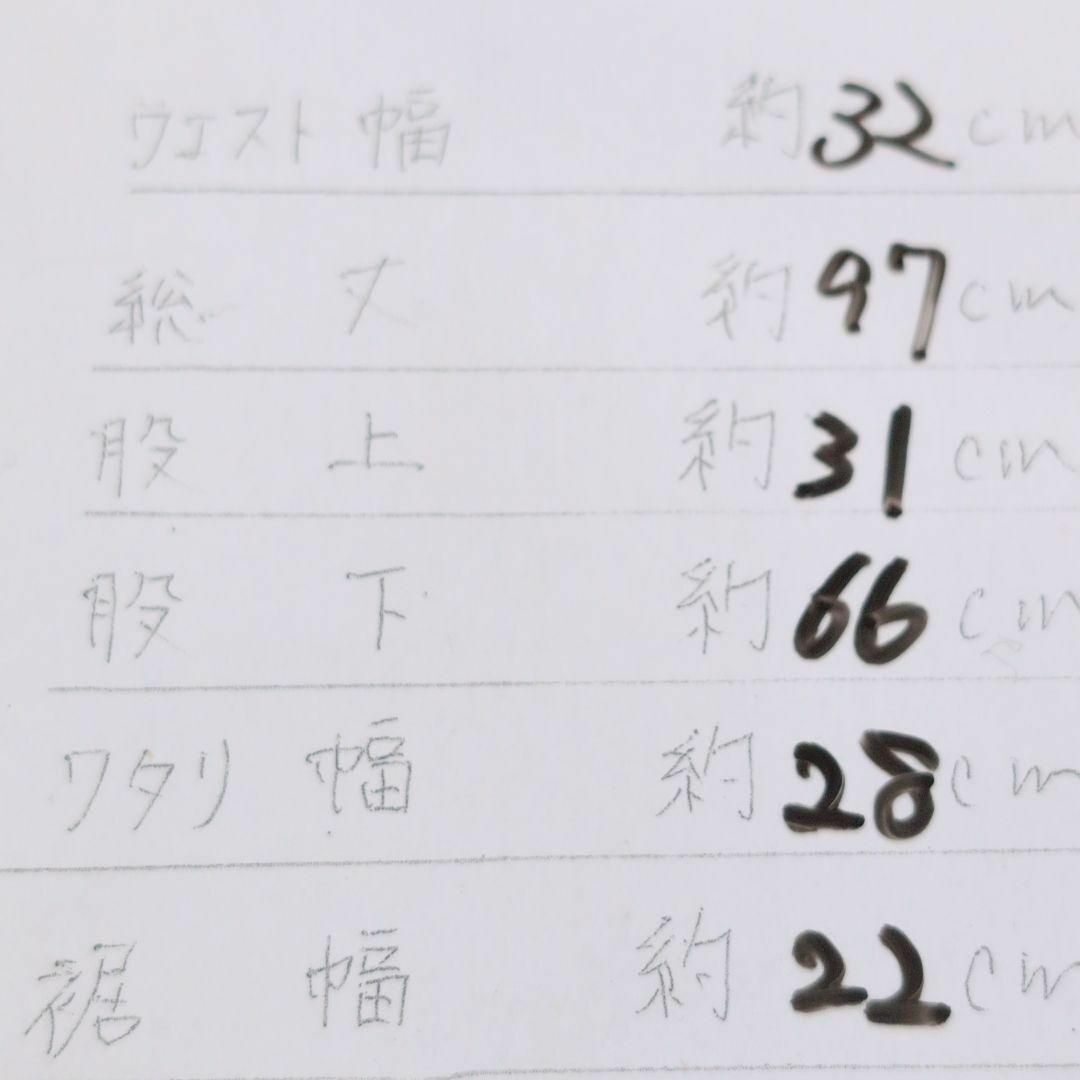 ウエスト幅 約32cm
総丈 約97cm
股上 約31cm
股下 約66cm
ワタリ幅 約28cm
裾幅 約22cm